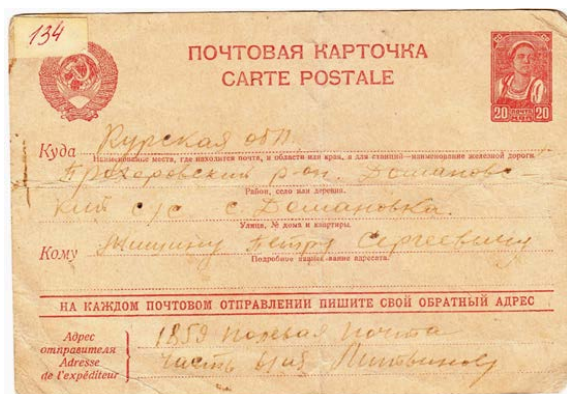 134
ПОЧТОВАЯ КАРТОЧКА
CARTE POSTALE
20 ПОЧТА 20
Куда Курская обл.
Наименование места, где находится почта, и области или края, а для станций—наименование железной дороги
Прохоровский р-он. Доманов-
Район, село или деревня.
ский с/с с. Домановка.
Улица, № дома и квартиры.
Кому Петру Сергеевичу
Подробное наименование адресата.
НА КАЖДОМ ПОЧТОВОМ ОТПРАВЛЕНИИ ПИШИТЕ СВОЙ ОБРАТНЫЙ АДРЕС
Адрес отправителя
Adresse de l'expéditeur
1859 полевая почта
часть